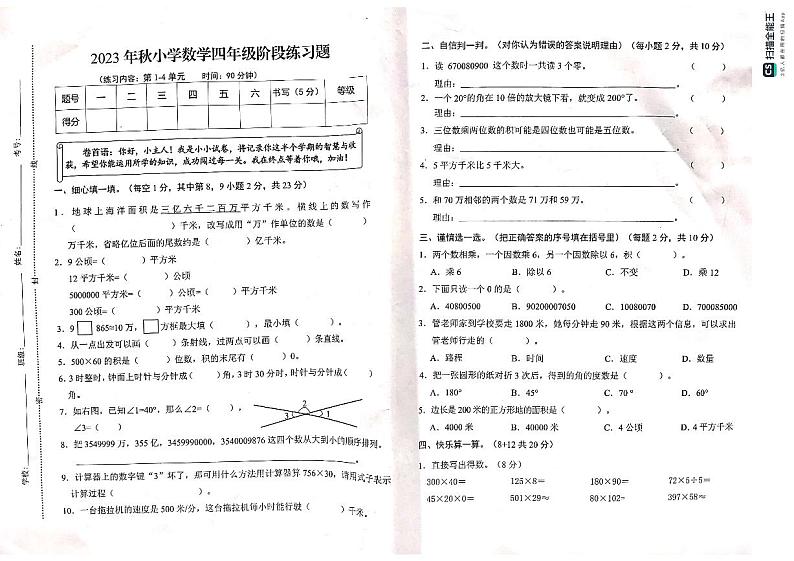 2023 年秋小学数学四年级阶段练习题
(练习内容：第 1-4 单元 时间：90 分钟)
题号 一 二 三 四 五 六 书写（5 分） 等级
得分
卷首语：你好，小主人！我是小小试卷，将记录你这半个学期的智慧与收
获，希望你能运用所学的知识，成功闯过每一关。我在终点等着你哦，加油！
一、细心填一填。（每空 1 分，其中第 8，9 小题 2 分，共 23 分）
1．地球上海洋面积是三亿六千二百万平方千米。横线上的数写作
（ ）千米，改写成用“万”作单位的数是（ ）
万千米，省略亿位后面的尾数约是（ ）亿千米。
2．9 公顷=（ ）平方米
12 平方千米=（ ）公顷
5000000 平方米=（ ）公顷=（ ）平方千米
300 公顷=（ ）平方千米
3．9□865≈10 万，□方框最大填（ ），最小填（ ）。
4．从一点出发可以画（ ）条射线，过两点可以画（ ）条直线。
5．500×60 的积是（ ）位数，积的末尾有（ ）0。
6．3 时整时，钟面上时针与分针成（ ）角，3 时 30 分时，时针与分针成（ ）
角。
7．如右图，已知∠1=40°，那么∠2=（ ），
∠3=（ ）
2
3 1
8．把 3549999 万，355 亿，3459990000，3540009876 这四个数从大到小的顺序排列。
9．计算器上的数字键“3”坏了，那可用什么方法用计算器算 756×30，请用式子表示
计算过程（ ）。
10．一台拖拉机的速度是 500 米/分，这台拖拉机每小时能行驶（ ）千米。
学校： 班级： 姓名： 考号：
密 封 线
二、自信判一判。（对你认为错误的答案说明理由）（每小题 2 分，共 10 分）
1．读 670080900 这个数时一共读 3 个零。 （ ）
理由：。
2．一个 20°的角在 10 倍的放大镜下看，就变成 200°了。 （ ）
理由：。
3．三位数乘两位数的积可能是四位数也可能是五位数。 （ ）
理由：。
4．5 平方千米比 5 千米大。 （ ）
理由：。
5．和 70 万相邻的两个数是 71 万和 59 万。 （ ）
理由：。
三、谨慎选一选。（把正确答案的序号填在括号里）（每题 2 分，共 10 分）
1．两个数相乘，一个因数乘 6，另一个因数除以 6，积（ ）。
A．乘 6 B．除以 6 C．不变 D．乘 12
2．下面只读一个 0 的是（ ）。
A．40800500 B．90200007050 C．10080070 D．700085000
3．管老师家到学校要走 1800 米，她每分钟走 90 米，根据这两个信息，可以求出
管老师行走的（ ）。
A．路程 B．时间 C．速度 D．数量
4．把一张圆形的纸对折 3 次后，得到的角的度数是（ ）。
A．180° B．45° C．70° D．60°
5．边长是 200 米的正方形地的面积是（ ）。
A．4000 米 B．40000 米 C．4 公顷 D．4 平方千米
四、快乐算一算。（8+12 共 20 分）
1．直接写出得数。（8 分）
300×40= 125×8= 180×90= 72×5÷5=
45×20×0= 501×29≈ 80×102≈ 397×59≈
CS 扫描全能王
3亿人都在用的扫描App